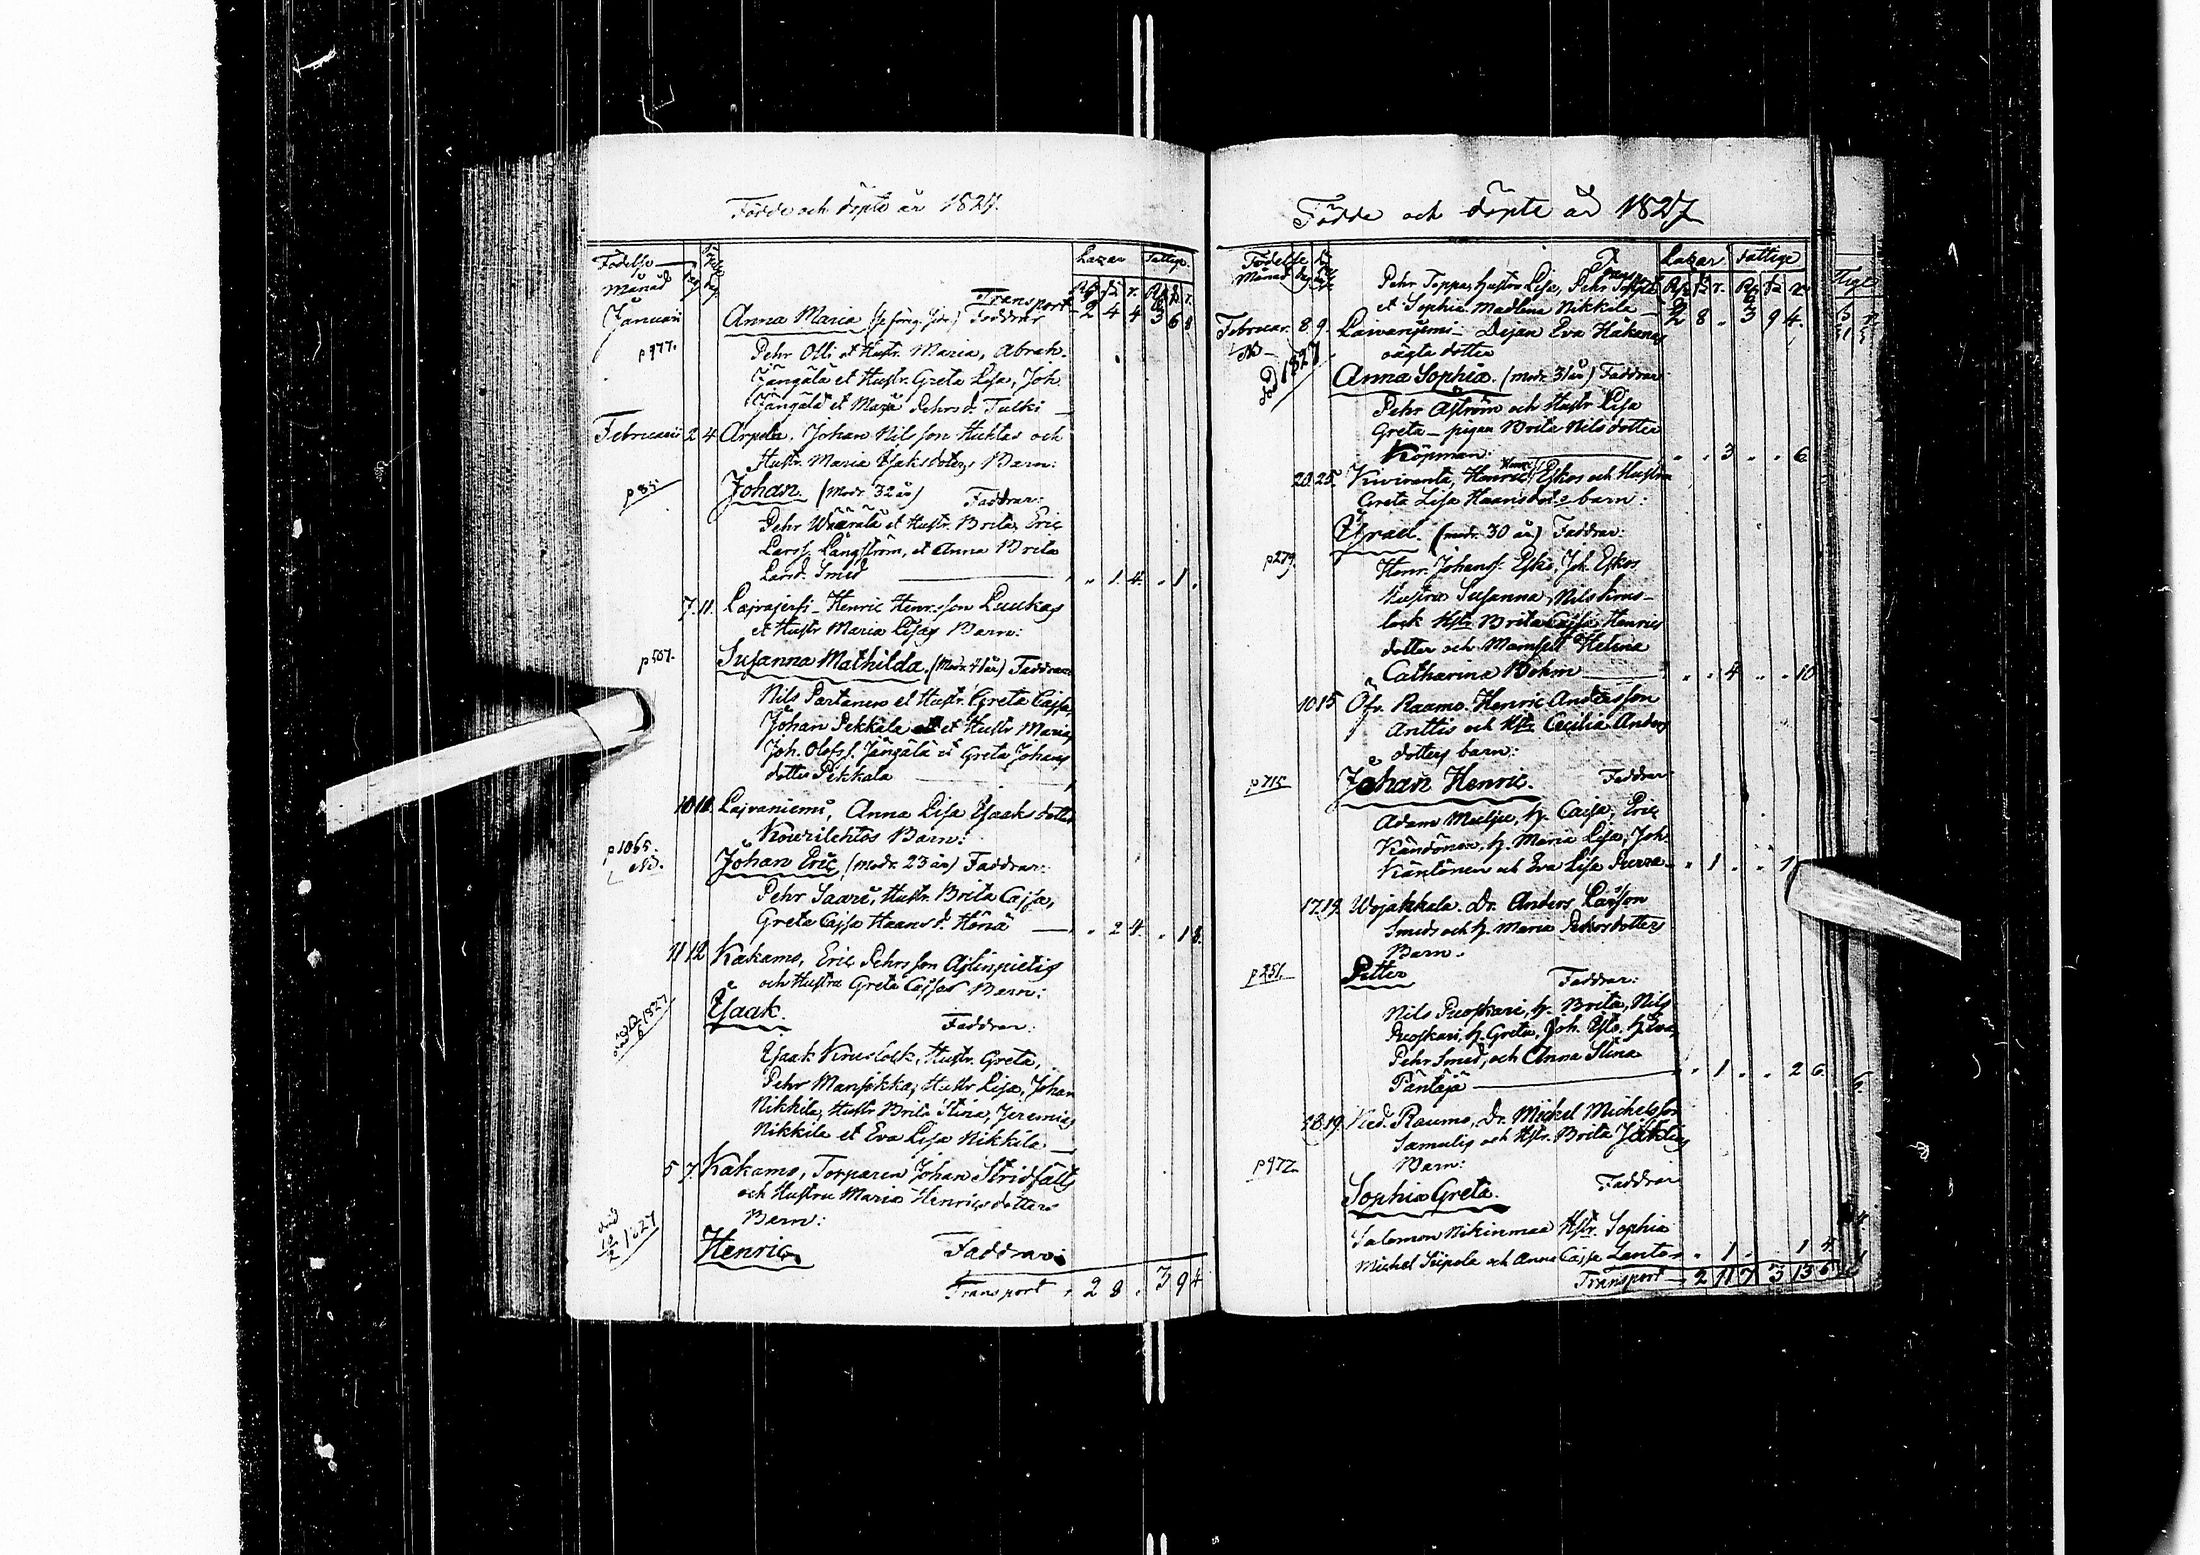 Födde och döpte år 1827.
Födelse
Månad dag
Lazar. Fattige.
Transport 2 4 4 3 6 8
Januarii Anna Maria (se föreg. sida) Faddrar
p 977. Pehr Olli et Hustr. Maria, Abrah.
Jängälä et Hustr. Greta Lisa, Joh.
Jängälä et Maria Pehrsd. Tulki
Februarii 2 4 Arpela. Johan Nilsson Huhtas och
Hustr. Maria Isaksdoters Barn:
p 35. Johan. (modr. 32 år) Faddrar:
Pehr Wäärälä et Hustr. Brita, Eric
Larss. Långström, et Anna Brita
Larsd. Smed " 1. 4. " 1.
7. 11. Lajrajerfi - Henric Henrsson Luukas
et Hustr Maria Lisas Barn:
p 507. Susanna Mathilda. (Modr. 41 år) Faddrar
Nils Partanen et Hustr. Greta Cajsa,
Johan Pekkala et Hustr Maria,
Joh. Olofss. Jängälä et Greta Johans
dotter Pekkala
10 Laivaniemi, Anna Lisa Isaaks dotter
Kowrilehtos Barn:
p 1065. Johan Eric, (modr. 23 år) Faddrar:
NB. Pehr Saari, Hustr. Brita Cajsa,
Greta Cajsa Haans d. Hörä " 2 4. " 1 8.
11 12 Kakamo, Eric Pehrsson Ajlinpietis
och Hustru Greta Cajsas Barn:
Isaak. Faddrar:
död 1827
Isaak Kruslock, Hustr. Greta,
Pehr Mansikka, Hustr Lisa, Johan
Nikkila, Hustr Brita Stina, Jeremias
Nikkila et Eva Lisa Nikkila
5 7. Kakamo, Torparen Johan Stridfälts
och Hustru Maria Henricsdotters
Barn:
död 1827
Henric. Faddrar:
Transport 2 8. 3 9 4
Födde och döpte år 1827
Födelse
Månad dag
Lazar. Fattige
Transport
Pehr Toppa, Hustru Lisa, Pehr
et Sophia Madlena Nikkila 2 8 " 3 9 4.
Februar. 8. 9. Laivaniemi - Dejan Eva Håkans
NB oägta dotter
död 1827
Anna Sophia. (modr. 31 år) Faddrar
Pehr Aström och Hustr Lisa
Greta - pigan Brita Nils dotter
Köpman: " " 3 " " 6
20. 25. Kiviranta, Henric Henrics. Eskos och Hustru
Greta Lisa Haansdot:s barn:
Israel. (modr. 30 år) Faddrar:
p 279. Henr. Johanss. Esko, Joh. Eskos
Hustru Susanna, Nils Krus-
lock Hstr Brita Cajsa Henrics
dotter och Mamsell Helena
Catharina Bohm " " 4 " " 10
10 15 Öfv. Raamo. Henric Andersson
Anttis och Hstr. Cecilia Anders
dotters barn:
p 715. Johan Henric. Faddrar
Adam Mulju, h. Cajsa, Eric
Käntönen, h. Maria Lisa, Joh.
Käntönen och Eva Lisa Purra " 1 " " 1
17 19. Wojakkala. Dr. Anders Larsson
Smeds och h. Maria dotters
Barn.
p 251. Petter Faddrar:
Nils Puoskari, h. Brita, Nils
Puoskari, h. Greta, Joh. h. Eva,
Pehr Smed, och Anna Stina
Päntäjä " " 1 " " 2 6.
18. 19. Ned. Raumo, Dr. Mickel Michelsson
Samulis och Hstr. Brita
Barn:
p 972. Sophia Greta. Faddrar
Salomon Nikinmaa Hstr. Sophia
Michel Siipola och Anna Cajsa Lanto " 1 " " 1 4.
Transport 2 11 7 3 13 6